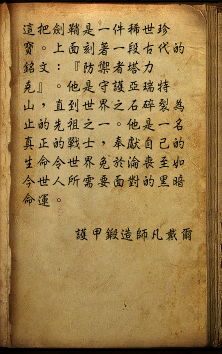 這把劍鞘是一件稀世珍
寶。上面刻著一段古代的
銘文：『防禦者塔力
克』。他是守護亞瑞特
山，直到世界之石碎裂為
止的先祖之一。他是一名
真正的戰士，奉獻自己的
生命令世界免於淪喪至如
今世人所需要面對的黑暗
命運。
護甲鍛造師凡戴爾